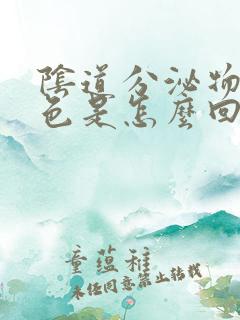 陰道分泌物
色是怎麼回
童蕴稚
未經同意禁止轉載